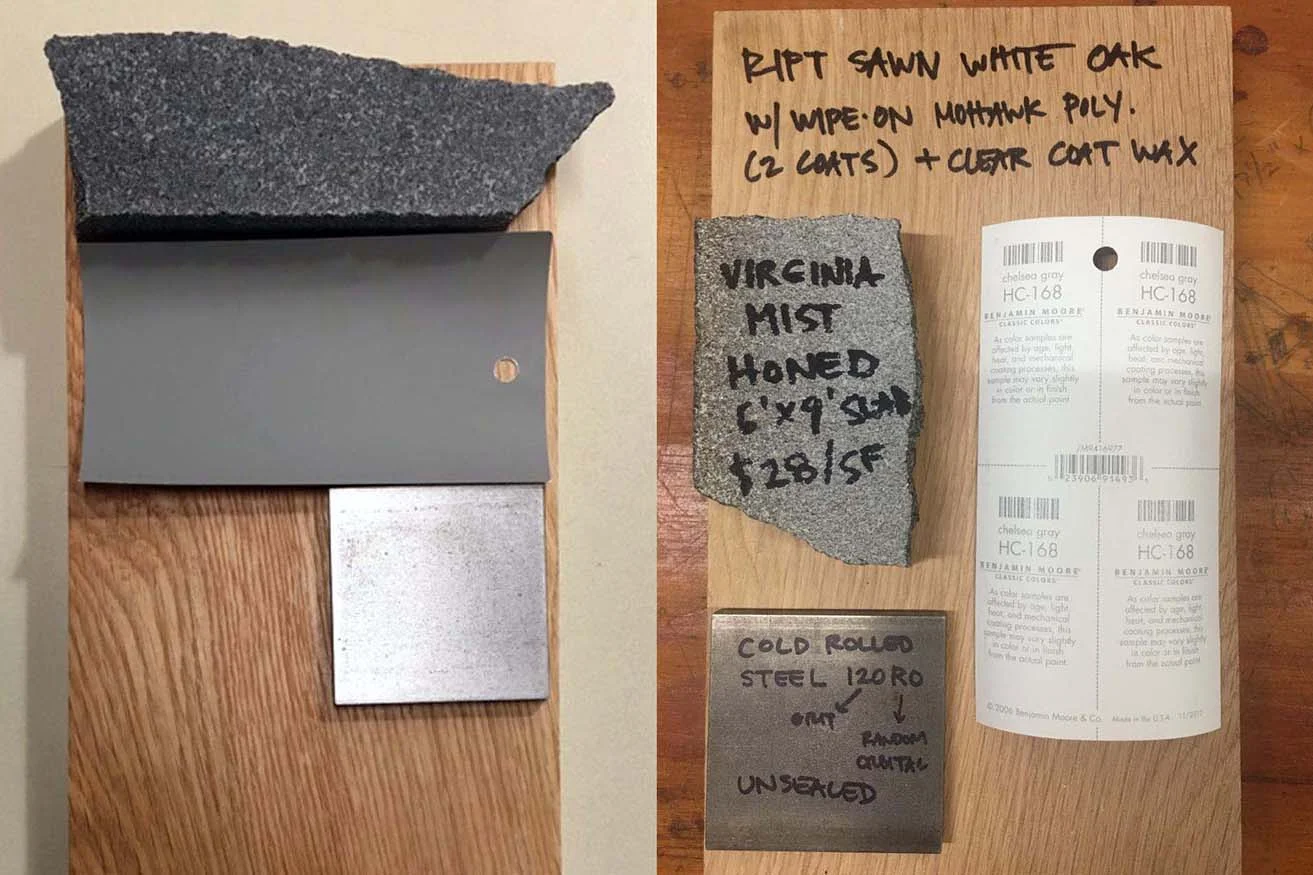 RIPT SAWN WHITE OAK
W/ WIPE·ON MOHAWK POLY.
(2 COATS) + CLEAR COAT WAX
VIRGINIA
MIST
HONED
6'x9' SLAB
$28/SF
COLD ROLLED
STEEL 120 RO
GRIT
RANDOM
ORBITAL
UNSEALED
chelsea gray
HC-168
BENJAMIN MOORE®
CLASSIC COLORS®
As color samples are
affected by age, light,
heat, and mechanical
coating processes, this
sample may vary slightly
in color or in finish
from the actual paint.
chelsea gray
HC-168
BENJAMIN MOORE®
CLASSIC COLORS®
As color samples are
affected by age, light,
heat, and mechanical
coating processes, this
sample may vary slightly
in color or in finish
from the actual paint.
chelsea gray
HC-168
BENJAMIN MOORE®
CLASSIC COLORS®
As color samples are
affected by age, light,
heat, and mechanical
coating processes, this
sample may vary slightly
in color or in finish
from the actual paint.
chelsea gray
HC-168
BENJAMIN MOORE®
CLASSIC COLORS®
As color samples are
affected by age, light,
heat, and mechanical
coating processes, this
sample may vary slightly
in color or in finish
from the actual paint.
© 2006 Benjamin Moore & Co. Made in the U.S.A.